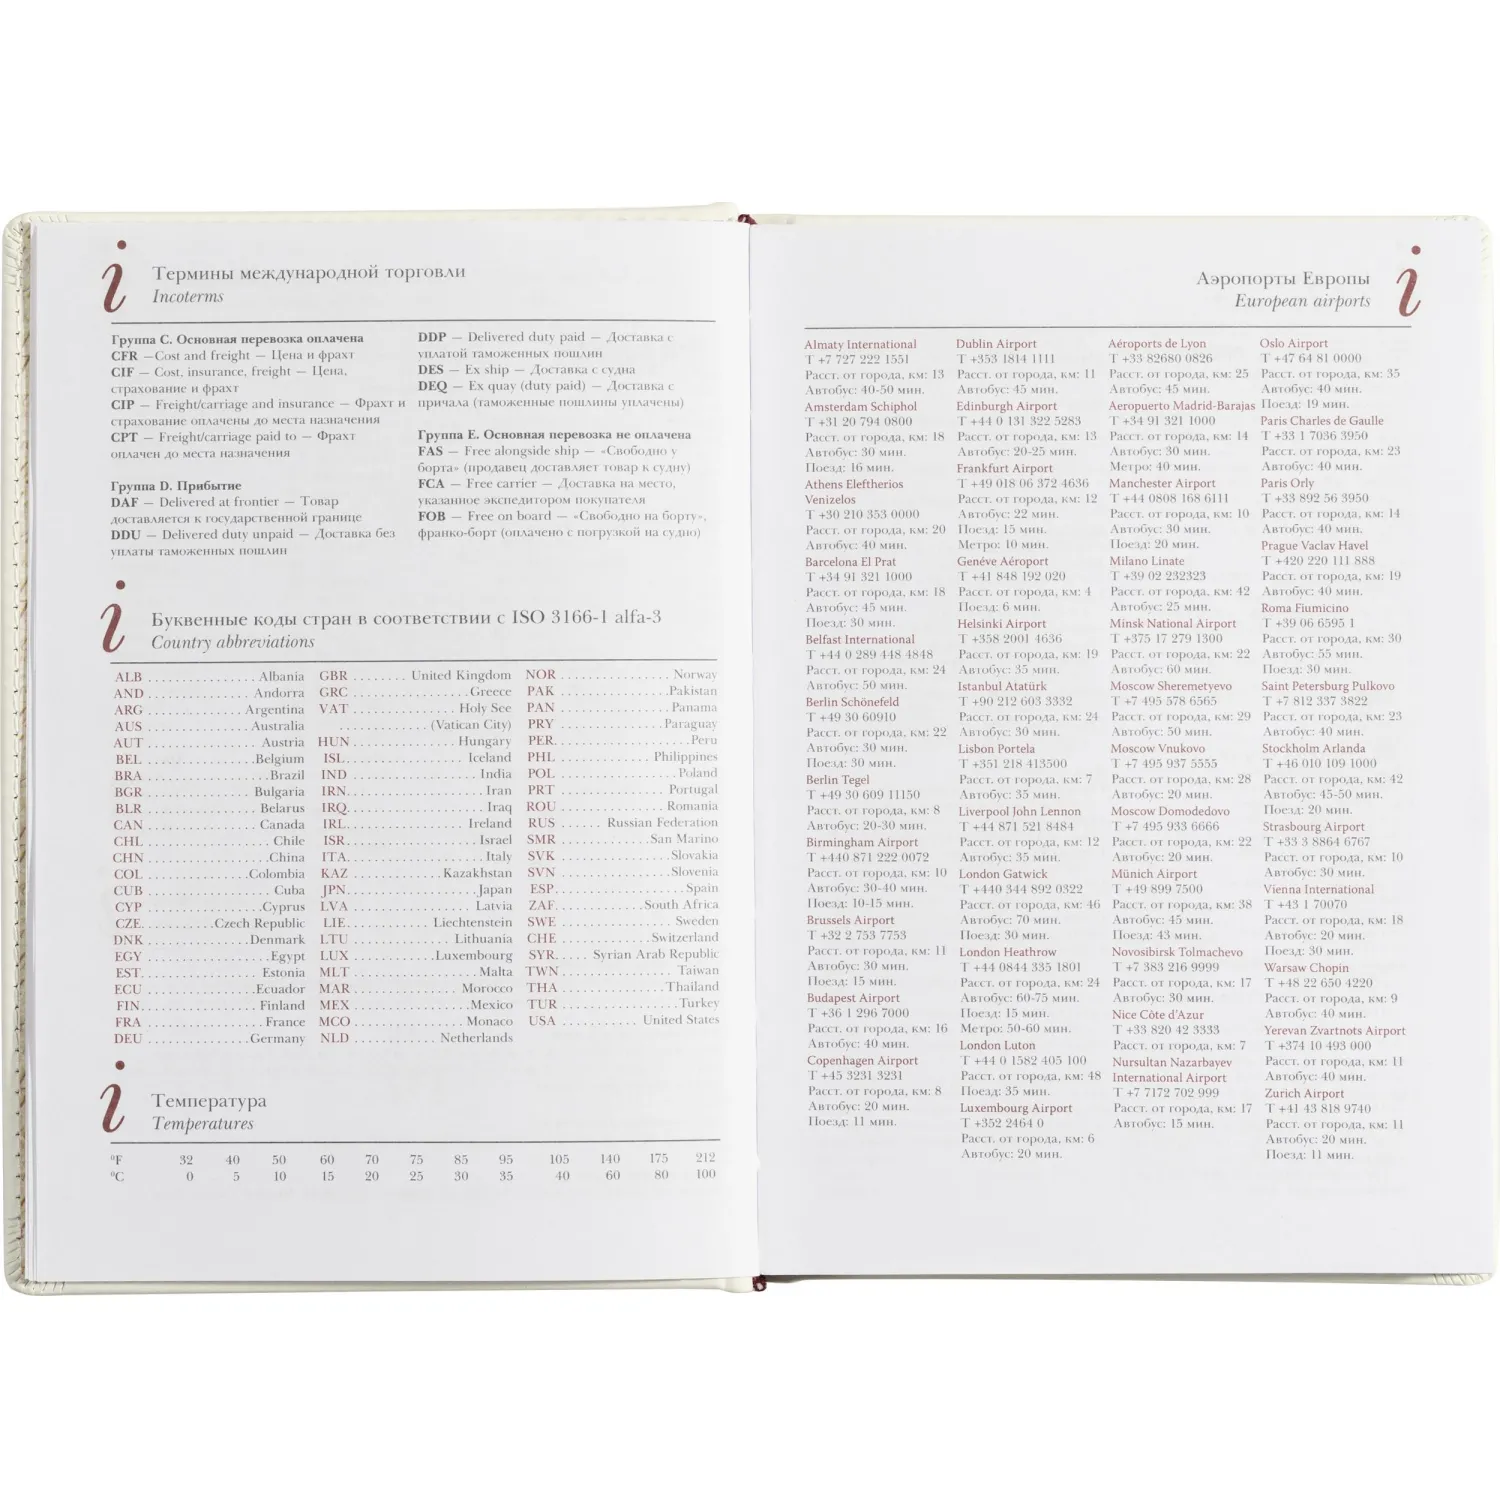 i
Термины международной торговли
Incoterms
Группа C. Основная перевозка оплачена
CFR —Cost and freight — Цена и фрахт
CIF — Cost, insurance, freight — Цена,
страхование и фрахт
CIP — Freight/carriage and insurance — Фрахт и
страхование оплачены до места назначения
CPT — Freight/carriage paid to — Фрахт
оплачен до места назначения
Группа D. Прибытие
DAF — Delivered at frontier — Товар
доставляется к государственной границе
DDU — Delivered duty unpaid — Доставка без
уплаты таможенных пошлин
DDP — Delivered duty paid — Доставка с
уплатой таможенных пошлин
DES — Ex ship — Доставка с судна
DEQ — Ex quay (duty paid) — Доставка с
причала (таможенные пошлины уплачены)
Группа E. Основная перевозка не оплачена
FAS — Free alongside ship — «Свободно у
борта» (продавец доставляет товар к судну)
FCA — Free carrier — Доставка на место,
указанное экспедитором покупателя
FOB — Free on board — «Свободно на борту»,
франко-борт (оплачено с погрузкой на судно)
i
Буквенные коды стран в соответствии с ISO 3166-1 alfa-3
Country abbreviations
ALB ................ Albania
AND ................ Andorra
ARG ................ Argentina
AUS ................ Australia
AUT ................ Austria
BEL ................ Belgium
BRA ................ Brazil
BGR ................ Bulgaria
BLR ................ Belarus
CAN ................ Canada
CHL ................ Chile
CHN ................ China
COL ................ Colombia
CUB ................ Cuba
CYP ................ Cyprus
CZE .......... Czech Republic
DNK ................ Denmark
EGY ................ Egypt
EST ................ Estonia
ECU ................ Ecuador
FIN ................ Finland
FRA ................ France
DEU ................ Germany
GBR ........ United Kingdom
GRC ................ Greece
VAT ................ Holy See
................ (Vatican City)
HUN ................ Hungary
ISL ................ Iceland
IND ................ India
IRN ................ Iran
IRQ ................ Iraq
IRL ................ Ireland
ISR ................ Israel
ITA ................ Italy
KAZ ............ Kazakhstan
JPN ................ Japan
LVA ................ Latvia
LIE ............ Liechtenstein
LTU ................ Lithuania
LUX ............ Luxembourg
MLT ................ Malta
MAR ................ Morocco
MEX ................ Mexico
MCO ................ Monaco
NLD ............ Netherlands
NOR ................ Norway
PAK ................ Pakistan
PAN ................ Panama
PRY ................ Paraguay
PER ................ Peru
PHL ............ Philippines
POL ................ Poland
PRT ................ Portugal
ROU ................ Romania
RUS ...... Russian Federation
SMR ............ San Marino
SVK ................ Slovakia
SVN ................ Slovenia
ESP ................ Spain
ZAF ............ South Africa
SWE ................ Sweden
CHE ............ Switzerland
SYR ..... Syrian Arab Republic
TWN ................ Taiwan
THA ................ Thailand
TUR ................ Turkey
USA ........... United States
i
Температура
Temperatures
°F 32 40 50 60 70 75 85 95 105 140 175 212
°C 0 5 10 15 20 25 30 35 40 60 80 100
Аэропорты Европы
European airports
i
Almaty International
T +7 727 222 1551
Расст. от города, км: 13
Автобус: 40-50 мин.
Amsterdam Schiphol
T +31 20 794 0800
Расст. от города, км: 18
Автобус: 30 мин.
Поезд: 16 мин.
Athens Eleftherios
Venizelos
T +30 210 353 0000
Расст. от города, км: 20
Автобус: 40 мин.
Barcelona El Prat
T +34 91 321 1000
Расст. от города, км: 18
Автобус: 45 мин.
Поезд: 30 мин.
Belfast International
T +44 0 289 448 4848
Расст. от города, км: 24
Автобус: 50 мин.
Berlin Schönefeld
T +49 30 60910
Расст. от города, км: 22
Автобус: 30 мин.
Поезд: 30 мин.
Berlin Tegel
T +49 30 609 11150
Расст. от города, км: 8
Автобус: 20-30 мин.
Birmingham Airport
T +440 871 222 0072
Расст. от города, км: 10
Автобус: 30-40 мин.
Поезд: 10-15 мин.
Brussels Airport
T +32 2 753 7753
Расст. от города, км: 11
Автобус: 30 мин.
Поезд: 15 мин.
Budapest Airport
T +36 1 296 7000
Расст. от города, км: 16
Автобус: 40 мин.
Copenhagen Airport
T +45 3231 3231
Расст. от города, км: 8
Автобус: 20 мин.
Поезд: 11 мин.
Dublin Airport
T +353 1814 1111
Расст. от города, км: 11
Автобус: 45 мин.
Edinburgh Airport
T +44 0 131 322 5283
Расст. от города, км: 13
Автобус: 20-25 мин.
Frankfurt Airport
T +49 018 06 372 4636
Расст. от города, км: 12
Автобус: 22 мин.
Поезд: 15 мин.
Метро: 10 мин.
Genéve Aéroport
T +41 848 192 020
Расст. от города, км: 4
Поезд: 6 мин.
Helsinki Airport
T +358 2001 4636
Расст. от города, км: 19
Автобус: 35 мин.
Istanbul Atatürk
T +90 212 603 3332
Расст. от города, км: 24
Автобус: 30 мин.
Lisbon Portela
T +351 218 413500
Расст. от города, км: 7
Автобус: 35 мин.
Liverpool John Lennon
T +44 871 521 8484
Расст. от города, км: 12
Автобус: 35 мин.
London Gatwick
T +440 344 892 0322
Расст. от города, км: 46
Автобус: 70 мин.
Поезд: 30 мин.
London Heathrow
T +44 0844 335 1801
Расст. от города, км: 24
Автобус: 60-75 мин.
Поезд: 15 мин.
Метро: 50-60 мин.
London Luton
T +44 0 1582 405 100
Расст. от города, км: 48
Поезд: 35 мин.
Luxembourg Airport
T +352 2464 0
Расст. от города, км: 6
Автобус: 20 мин.
Aéroports de Lyon
T +33 82680 0826
Расст. от города, км: 25
Автобус: 45 мин.
Aeropuerto Madrid-Barajas
T +34 91 321 1000
Расст. от города, км: 14
Автобус: 30 мин.
Метро: 40 мин.
Manchester Airport
T +44 0808 168 6111
Расст. от города, км: 10
Автобус: 30 мин.
Поезд: 20 мин.
Milano Linate
T +39 02 232323
Расст. от города, км: 42
Автобус: 25 мин.
Minsk National Airport
T +375 17 279 1300
Расст. от города, км: 22
Автобус: 60 мин.
Moscow Sheremetyevo
T +7 495 578 6565
Расст. от города, км: 29
Автобус: 50 мин.
Moscow Vnukovo
T +7 495 937 5555
Расст. от города, км: 28
Автобус: 20 мин.
Moscow Domodedovo
T +7 495 933 6666
Расст. от города, км: 22
Автобус: 20 мин.
Münich Airport
T +49 899 7500
Расст. от города, км: 38
Автобус: 45 мин.
Поезд: 43 мин.
Novosibirsk Tolmachevo
T +7 383 216 9999
Расст. от города, км: 17
Автобус: 30 мин.
Nice Côte d'Azur
T +33 820 42 3333
Расст. от города, км: 7
Nursultan Nazarbayev
International Airport
T +7 7172 702 999
Расст. от города, км: 17
Автобус: 15 мин.
Oslo Airport
T +47 64 81 0000
Расст. от города, км: 35
Автобус: 40 мин.
Поезд: 19 мин.
Paris Charles de Gaulle
T +33 1 7036 3950
Расст. от города, км: 23
Автобус: 40 мин.
Paris Orly
T +33 892 56 3950
Расст. от города, км: 14
Автобус: 40 мин.
Prague Vaclav Havel
T +420 220 111 888
Расст. от города, км: 19
Автобус: 40 мин.
Roma Fiumicino
T +39 06 6595 1
Расст. от города, км: 30
Автобус: 55 мин.
Поезд: 30 мин.
Saint Petersburg Pulkovo
T +7 812 337 3822
Расст. от города, км: 23
Автобус: 40 мин.
Stockholm Arlanda
T +46 010 109 1000
Расст. от города, км: 42
Автобус: 45-50 мин.
Поезд: 20 мин.
Strasbourg Airport
T +33 3 8864 6767
Расст. от города, км: 10
Автобус: 30 мин.
Vienna International
T +43 1 70070
Расст. от города, км: 18
Автобус: 20 мин.
Поезд: 30 мин.
Warsaw Chopin
T +48 22 650 4220
Расст. от города, км: 9
Автобус: 40 мин.
Yerevan Zvartnots Airport
T +374 10 493 000
Расст. от города, км: 11
Автобус: 40 мин.
Zurich Airport
T +41 43 818 9740
Расст. от города, км: 11
Автобус: 20 мин.
Поезд: 11 мин.